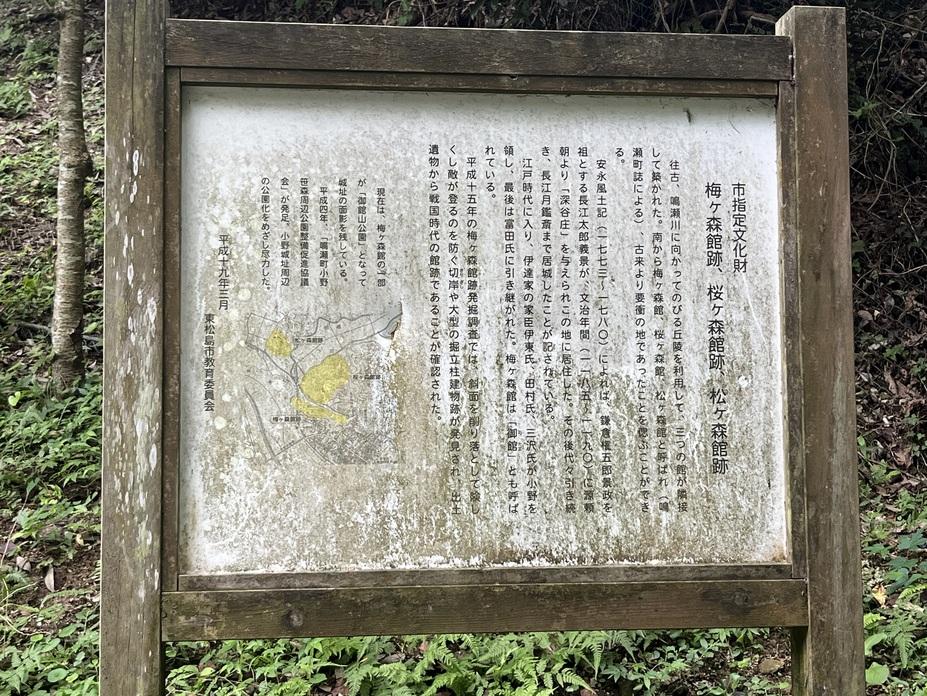 市指定文化財
梅ヶ森館跡、桜ヶ森館跡、松ヶ森館跡
往古、鳴瀬川に向かってのびる丘陵を利用して、三つの館が隣接
して築かれた。南から梅ヶ森館、桜ヶ森館、松ヶ森館と呼ばれ（鳴
瀬町誌による）、古来より要衝の地であったことを偲ぶことができ
る。
安永風土記（一七七三～一七八〇）によれば、鎌倉権五郎景政を
祖とする長江太郎義景が、文治年間（一一八五～一一九〇）に源頼
朝より「深谷庄」を与えられこの地に居住した。その後代々引き続
き、長江月鑑斎まで居城したことが記されている。
江戸時代に入り、伊達家の家臣伊東氏、田村氏、三沢氏が小野を
領し、最後は富田氏に引き継がれた。梅ヶ森館は「御館」とも呼ば
れている。
平成十五年の梅ヶ森館跡発掘調査では、斜面を削り落として険し
くし敵が登るのを防ぐ切岸や大型の掘立柱建物跡が発見され、出土
遺物から戦国時代の館跡であることが確認された。
現在は、梅ヶ森館の一部
が「御館山公園」となって
城址の面影を残している。
平成四年、「鳴瀬町小野
笹森周辺公園整備促進協議
会」が発足、小野城址周辺
の公園化をめざし尽力した。
松ヶ森館跡
桜ヶ森館跡
梅ヶ森館跡
平成十九年三月
東松島市教育委員会